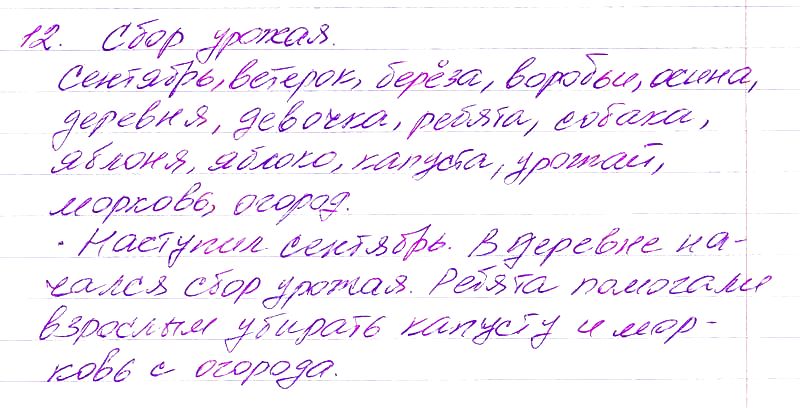 12. Сбор урожая.
Сентябрь, ветерок, берёза, воробьи, осина,
деревня, девочка, ребята, собака,
яблоня, яблоко, капуста, урожай,
морковь, огород.
· Наступил сентябрь. В деревне на-
чался сбор урожая. Ребята помогали
взрослым убирать капусту и мор-
ковь с огорода.